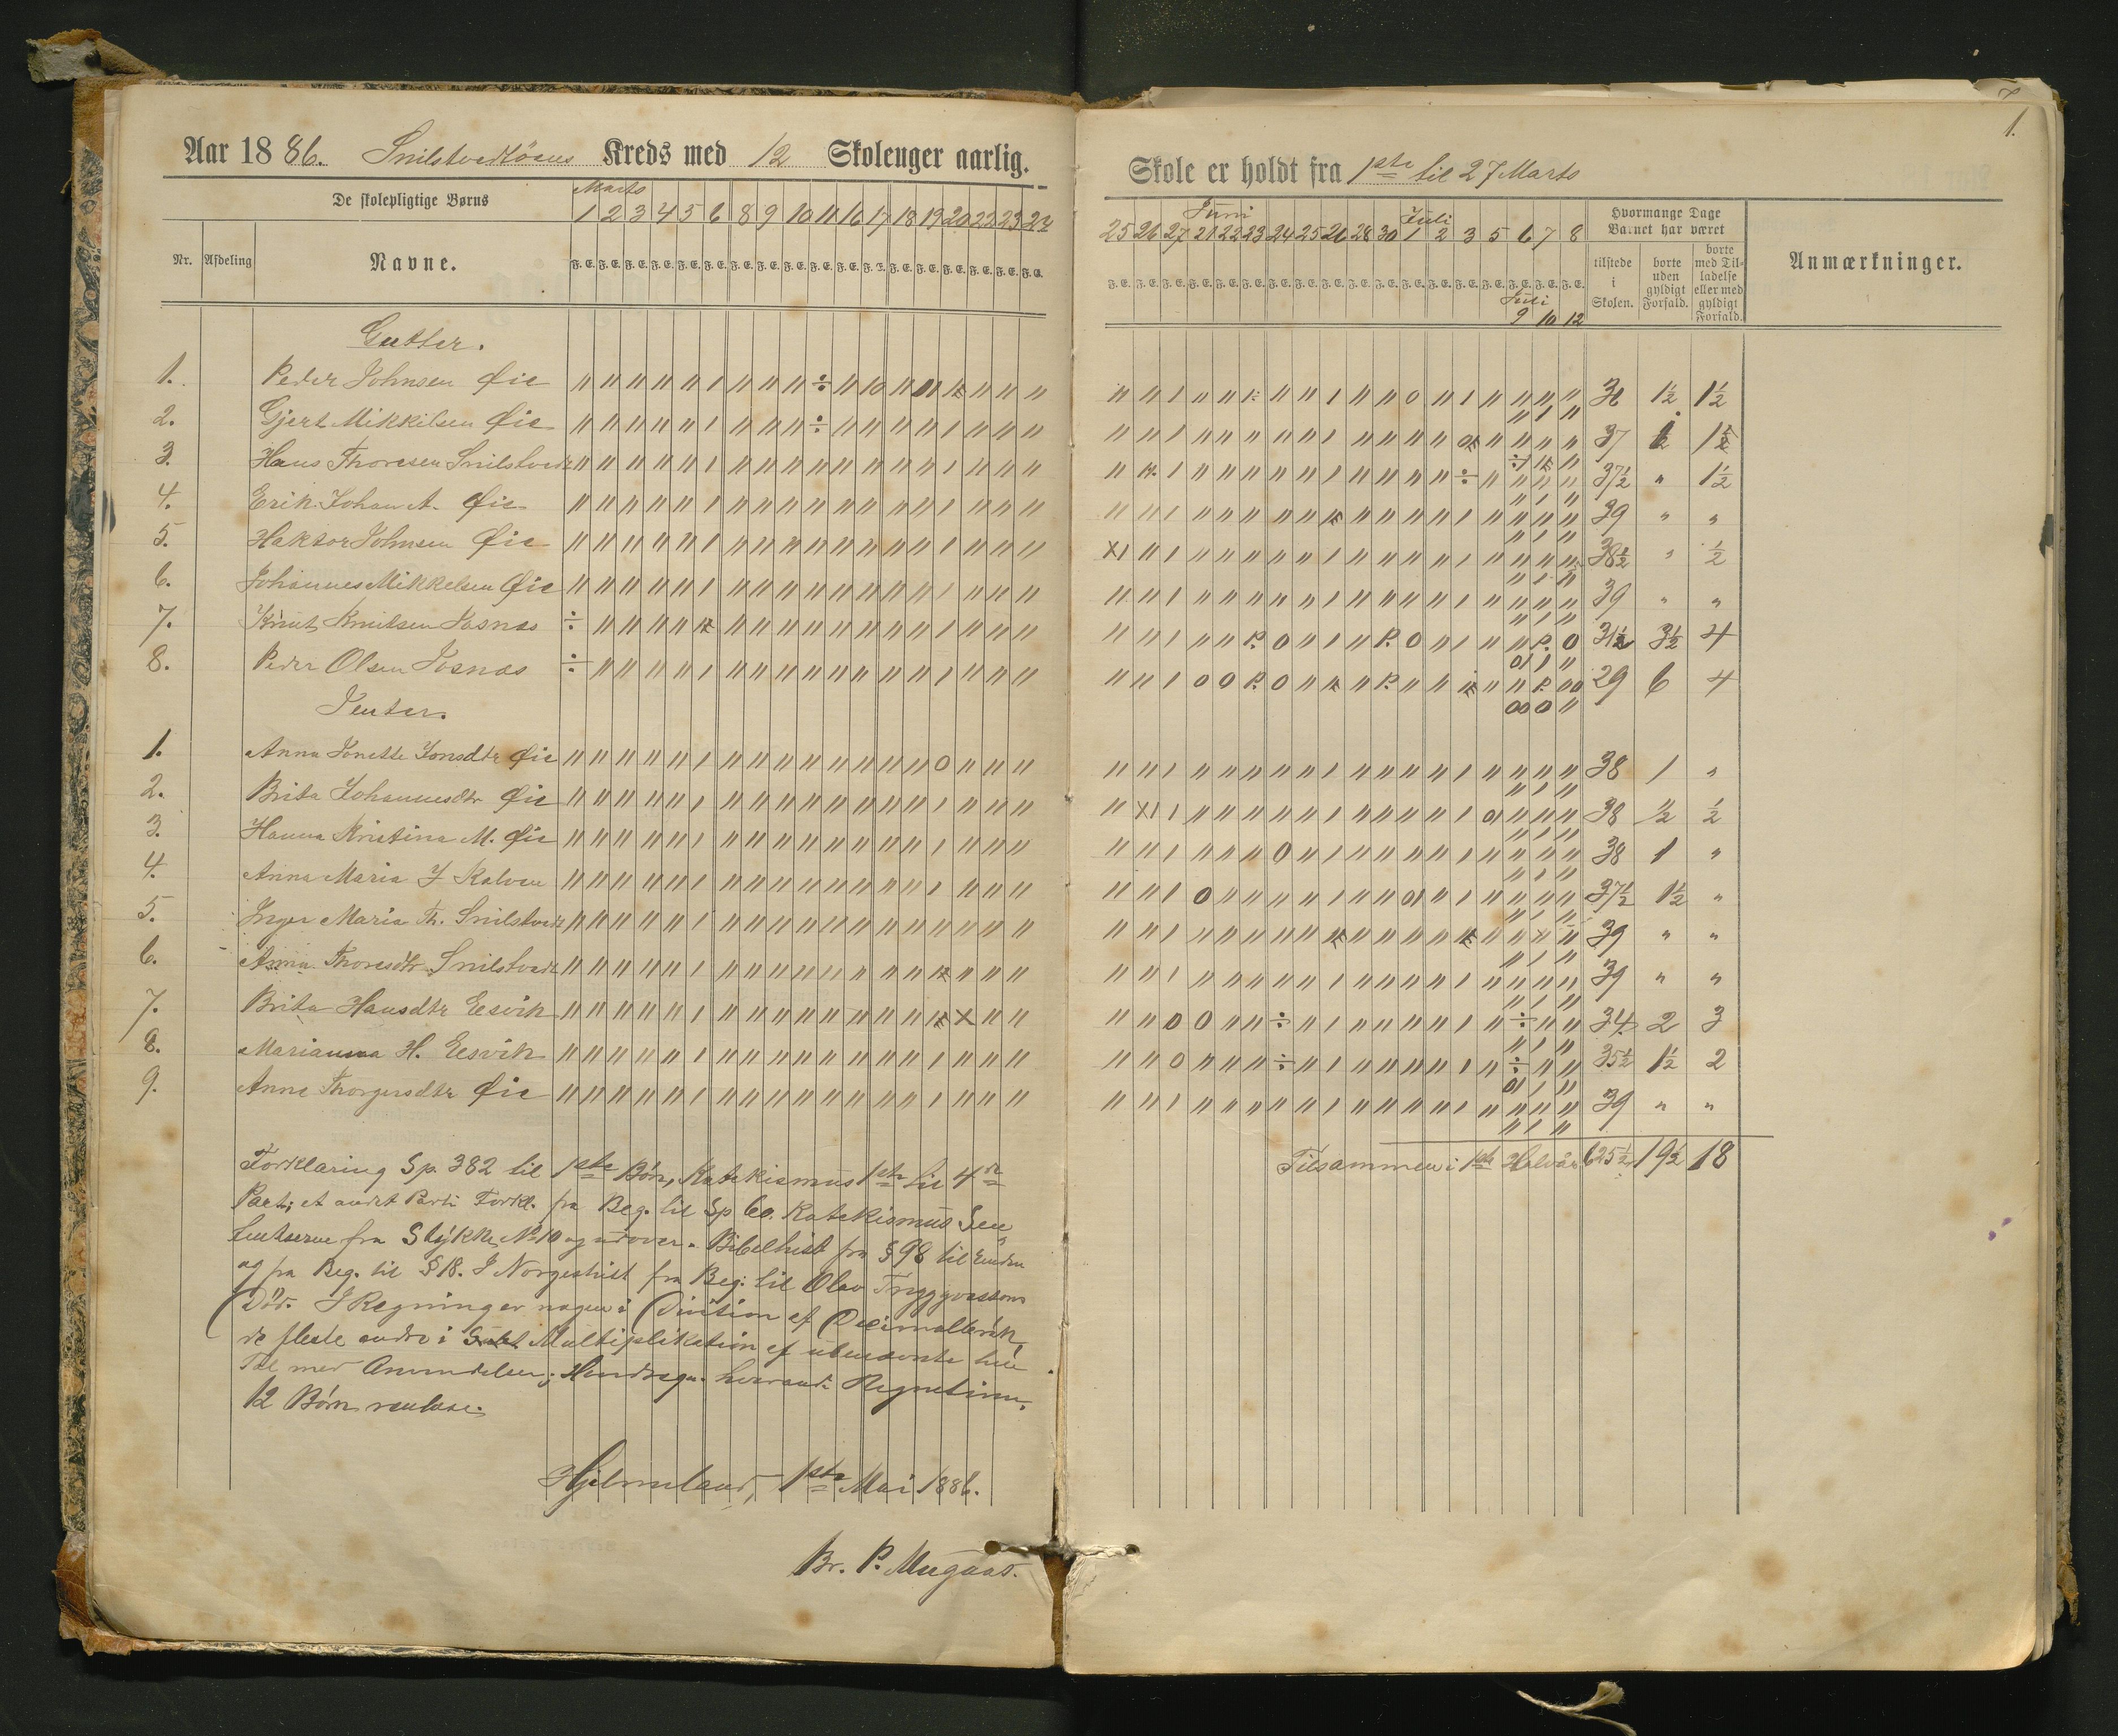 Aar 1886. Snilstvedtöens Kreds med 12 Skoleuger aarlig.
De skolepligtige Børns
Marts
1 2 3 4 5 6 8 9 10 11 16 17 18 19 20 22 23 24
Nr. Afdeling Navne.
F. E. F. E. F. E. F. E. F. E. F. E. F. E. F. E. F. E. F. E. F. E. F. E. F. E. F. E. F. E. F. E. F. E. F. E.
Gutter.
1. Peder Johnsen Øie
2. Gjert Mikkelsen Øie
3. Hans Thoresen Snilstvedt
4. Erik Johan A. Øie
5. Haktor Johnsen Øie
6. Johannes Mikkelsen Øie
7. Knut Knutsen Fosnæs
8. Peder Olsen Fosnæs
Jenter.
1. Anna Jonette Jonsdtr Øie
2. Brita Johannesdtr Øie
3. Hanna Kristina M. Øie
4. Anna Maria J Kalven
5. Inger Maria Th. Snilstvedt
6. Anna Thoresdtr Snilstvedt
7. Brita Hansdtr Eesvik
8. Marianna H. Eesvik
9. Anne Thorgersdtr Øie
Forklaring Sp. 382 til 1ste Bøn, Katekismus 1ste til 4de
Part; et andet Parti Forkl. fra Beg. til Sp 60. Katekismus Sen„
tentserne fra Stykke No 10 og udover. Bibelhist fra § 98 til Enden
og fra Beg. til § 18. I Norgeshist fra Beg: til Olav Tryggvessøns
Død. I Regning er nogen i Division af Decimalbrøk,
de fleste andre i Multiplikation af ubenævnte hele
Tal med Anvendelser; Hovedregn. hverand. Regnetime.
12 Børn renlæse.
Hjelmeland, 1ste Mai 1886.
Br. P. Mugaas.
7
1.
Skole er holdt fra 1ste til 27 Marts
Juni Juli
25 26 27 21 22 23 24 25 26 28 30 1 2 3 5 6 7 8
Hvormange Dage
Barnet har været
tilstede i Skolen.
borte uden gyldigt Forfald.
borte med Tilladelse eller med gyldigt Forfald.
Anmærkninger.
F. E. F. E. F. E. F. E. F. E. F. E. F. E. F. E. F. E. F. E. F. E. F. E. F. E. F. E. F. E. F. E. F. E. F. E.
Juli
9 10 12
36 1½ 1½
37 ½ 1½
37½ " 1½
39 " "
38½ " ½
39 " "
31½ 3½ 4
29 6 4
38 1 "
38 ½ ½
38 1 "
37½ 1½ "
39 " "
39 " "
34 2 3
35½ 1½ 2
39 " "
Tilsammen i 1ste Halvår 625½ 19½ 18